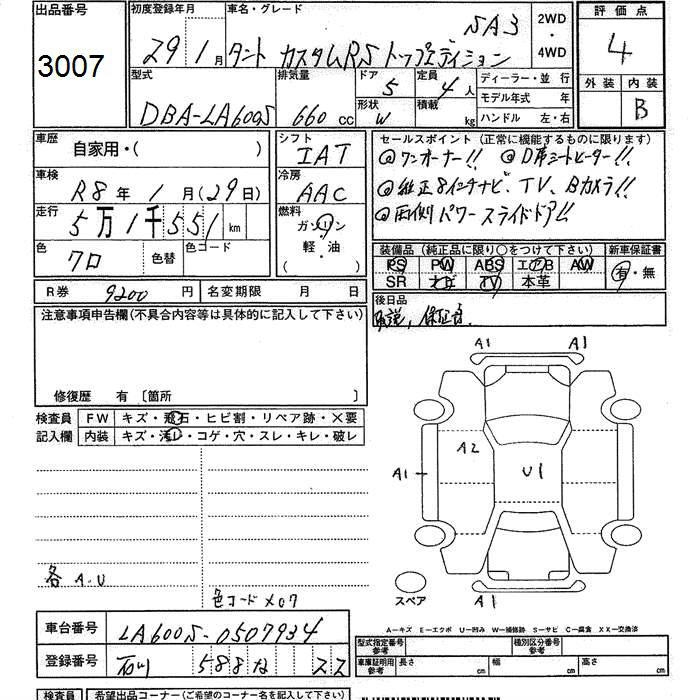 出品番号 初度登録年月 車名・グレード 評価点
3007 29年1月 タント カスタムRS トップエディション SA3 2WD・4WD 4
型式 排気量 ドア 定員 ディーラー・並 行 外装 内装
DBA-LA600S 660cc 5 4人 モデル年式 年 B
形状 W 積載 kg ハンドル 左・右
車歴 自家用・( ) シフト IAT セールスポイント(正常に機能するものに限ります)
◎ワンオーナー!! ◎D席シートヒーター!!
車検 R8年1月(29日) 冷房 AAC
◎純正8インチナビ、TV、Bカメラ!!
走行 5万1千551km 燃料 ガソリン 軽・油 ( )
◎両側パワースライドドア!!
色 クロ 色替 色コード
装備品(純正品に限り○をつけて下さい) 新車保証書
PS PW ABS エアB AW 有・無
SR ナビ TV 本革
R券 9200円 名変期限 月 日 後日品
取説、保証書
注意事項申告欄(不具合内容等は具体的に記入して下さい)
修復歴 有 〔箇所 〕
検査員 FW キズ・飛石・ヒビ割・リペア跡・×要
記入欄 内装 キズ・汚レ・コゲ・穴・スレ・キレ・破レ
A1 A1
A2
A1 U1
各A.U
色コードX07
スペア A1
A-キズ E-エクボ U-凹み W-補修跡 S-サビ C-腐食 XX-交換済
車台番号 LA600S-0507934
型式指定番号参考 種別区分番号参考
登録番号 石川 588 な スス
車庫証明用参考 長さ cm 幅 cm 高さ cm
検査員 希望出品コーナー(ご希望のコーナー名を記入して下さい)